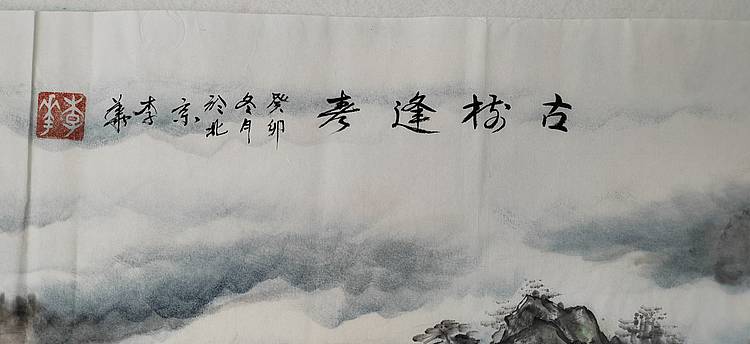 古树逢春
癸卯
冬月
於北
京
李
華
李华